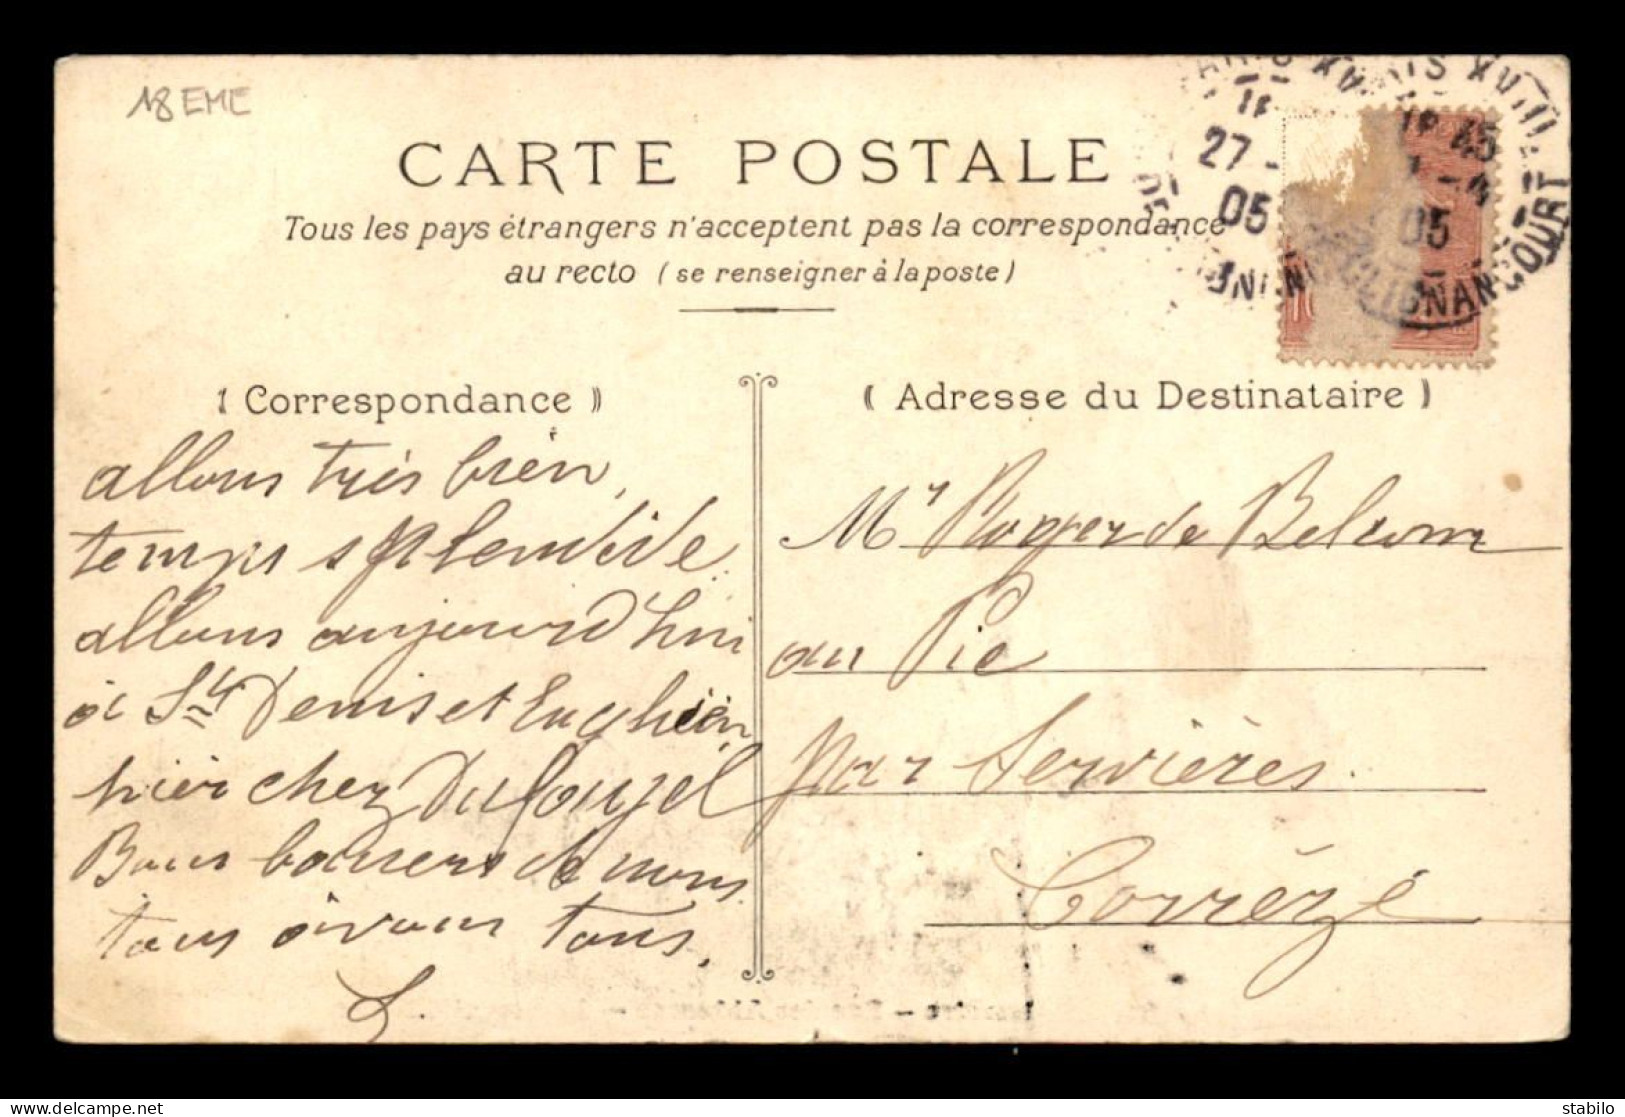 18 EME
CARTE POSTALE
Tous les pays étrangers n'acceptent pas la correspondance
au recto (se renseigner à la poste)
Correspondance
Adresse du Destinataire
PARIS XVIII
27
05
45
05
CLIGNANCOURT
allons très bien,
temps splendide
allons aujourd'hui
à St Denis et Enghien,
hier chez Dufouzel
Bons baisers de nous
tous à vous tous.
Mr Roger de
au Pic
par Servières
Corrèze
stabilo_4
Delcampe.net